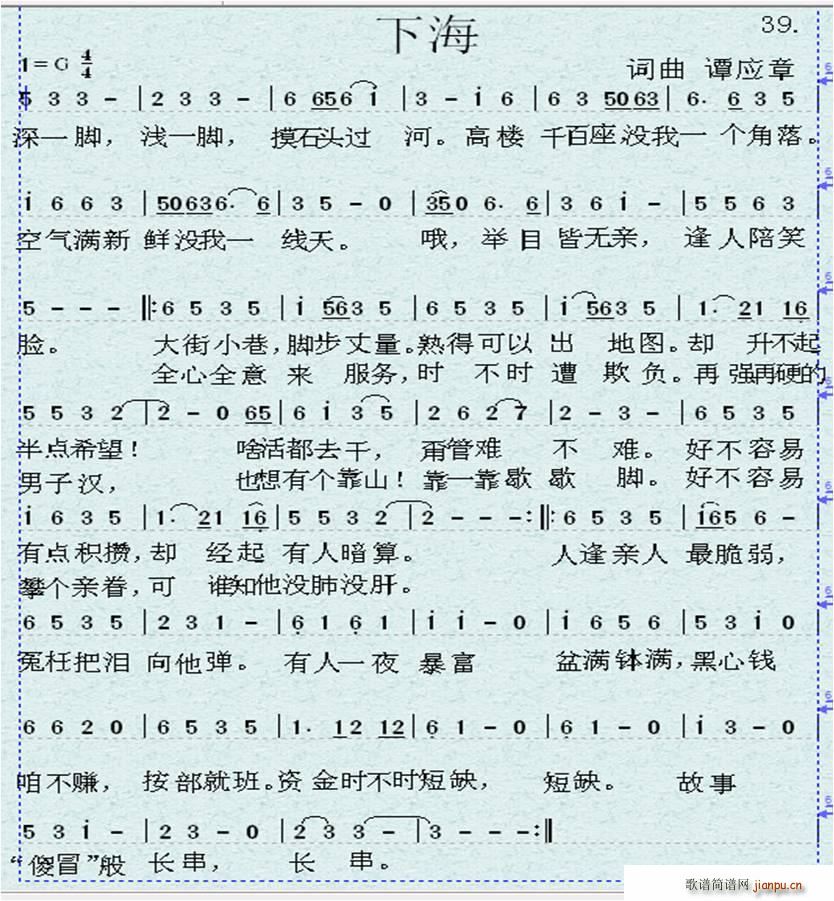 下海
39.
1=G 4/4
词曲 谭应章
5 3 3 - | 2 3 3 - | 6 656 i | 3 - i 6 | 6 3 5063 | 6. 6 3 5
深一脚, 浅一脚, 摸石头过 河。高楼 千百座,没我一 个角落。
i 6 6 3 | 50636. 6 | 3 5 - 0 | 350 6. 6 | 3 6 i - | 5 5 6 3
空气满新 鲜没我一 线天。 哦, 举目 皆无亲, 逢人陪笑
5 - - - ‖: 6 5 3 5 | i 563 5 | 6 5 3 5 | i 563 5 | 1. 21 16
脸。 大街小巷,脚步丈量。熟得可以 出 地图。却 升不起
全心全意 来 服务,时 不时遭 欺负。再强再硬的
5 5 3 2 | 2 - 0 65 | 6 i 3 5 | 2 6 2 7 | 2 - 3 - | 6 5 3 5
半点希望! 啥活都去干, 甭管难 不 难。好不容易
男子汉, 也想有个靠山!靠一靠歇 歇 脚。好不容易
i 6 3 5 | 1. 21 16 | 5 5 3 2 | 2 - - - :‖: 6 5 3 5 | i65 6 -
有点积攒,却 经起 有人暗算。 人逢亲人 最脆弱,
攀个亲眷,可 谁知他没肺没肝。
6 5 3 5 | 2 3 1 - | 6 1 6 1 | i i - 0 | i 6 5 6 | 5 3 i 0
冤枉把泪 向他弹。 有人一夜 暴富 盆满钵满,黑心钱
6 6 2 0 | 6 5 3 5 | 1. 12 12 | 6 1 - 0 | 6 1 - 0 | i 3 - 0
咱不赚, 按部就班。资金时不时短缺, 短缺。 故事
5 3 i - | 2 3 - 0 | 2 3 3 - | 3 - - - :‖
“傻冒”般 长串, 长 串。
歌谱简谱网 jianpu.cn